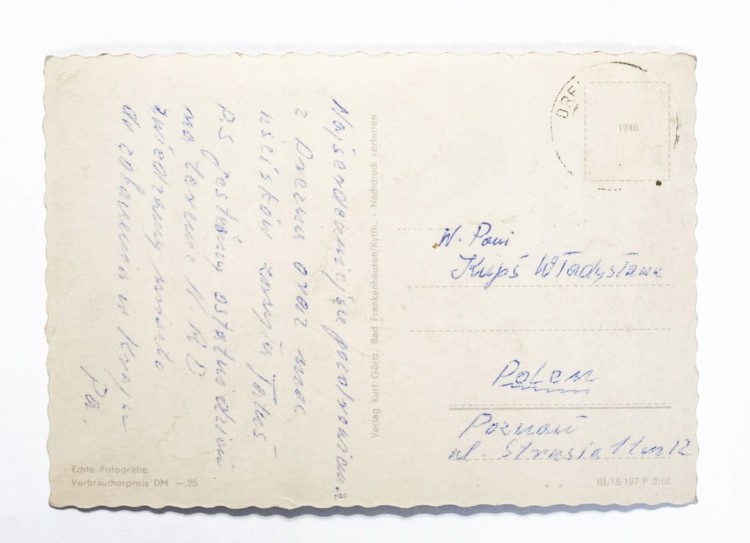 Najserdeczniejsze pozdrowienia
z Drezna oraz moc
uścisków zasyła Tatuś
P.S jesteśmy ostatni dzień
na terenie N.R.D
zwiedzamy miasto
do zobaczenia w Kraju
Pa.
Verlag Kurt Görtz, Bad Frankenhausen/Kyffh. · Nachdruck verboten
1746
W. Pani
Kupś Władysława
Polen
Poznań
ul. Strusia 11 m 12
Echte Fotografie
Verbraucherpreis DM —.25
III/18/197 P 2/62